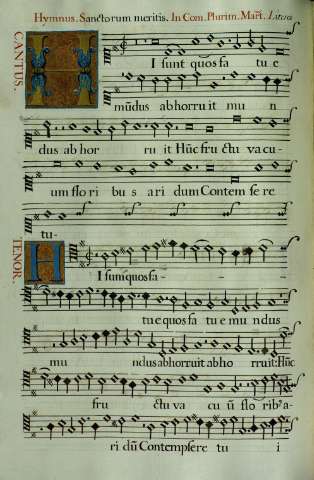 Hymnus. Sanctorum meritis. In Com. Plurim. Mart.
CANTUS.
H I sunt quos fa tu e
mūdus abhorruit mun
dus ab hor ru it Hūc fructu vacu-
um flori bus ari dum Contem sere
tu-
TENOR.
H I sunt quos fa-
tue quos fa tue mu ndus
mu ndus abhorruit abho rruit: Hūc
fru ctu va cu ū flo rib⁹ a-
ri dū Contempsere tu i